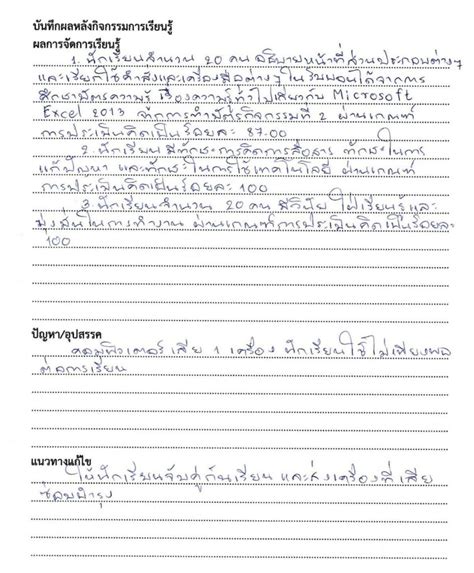 บันทึกผลหลังกิจกรรมการเรียนรู้
ผลการจัดการเรียนรู้
1. นักเรียนจำนวน 20 คน อธิบายหน้าที่ส่วนประกอบต่างๆ
และเรียกใช้คำสั่งและเครื่องมือต่างๆ ในริบบอนได้จากการ
ศึกษาบัตรความรู้ เรื่องความรู้ทั่วไปเกี่ยวกับ Microsoft
Excel 2013 จากการทำบัตรกิจกรรมที่ 2 ผ่านเกณฑ์
การประเมินคิดเป็นร้อยละ 87.00
2. นักเรียนมีทักษะการคิดการสื่อสาร ทักษะในการ
แก้ปัญหา และทักษะในการใช้เทคโนโลยี ผ่านเกณฑ์
การประเมินคิดเป็นร้อยละ 100
3. นักเรียนจำนวน 20 คน มีวินัย ใฝ่เรียนรู้และ
มุ่งมั่นในการทำงาน ผ่านเกณฑ์การประเมินคิดเป็นร้อยละ
100
ปัญหา/อุปสรรค
คอมพิวเตอร์เสีย 1 เครื่อง นักเรียนใช้ไม่เพียงพอ
ต่อการเรียน
แนวทางแก้ไข
ให้นักเรียนจับคู่กันเรียน และส่งเครื่องที่เสีย
ซ่อมบำรุง